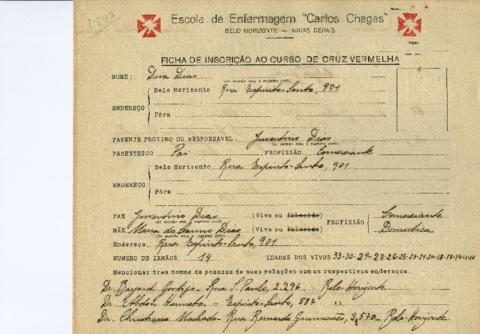 Escola de Enfermagem "Carlos Chagas"
BELO HORIZONTE — MINAS GERAIS
FICHA DE INSCRIÇÃO AO CURSO DE CRUZ VERMELHA
NOME: Diva Dias
Belo Horizonte Rua Espirito-Santo, 901
ENDEREÇO
Fóra
PARENTE PROXIMO OU RESPONSÁVEL: Juventino Dias
PARENTESCO Pai PROFISSÃO Comerciante
Belo Horizonte Rua Espirito-Santo, 901
ENDEREÇO
Fóra
PAE Juventino Dias (Vivo ou falecido) PROFISSÃO Comerciante
MÃE Maria do Dias (Viva ou falecida) Domestica
Endereço Rua Espirito-Santo, 901
NUMERO DE IRMÃOS 14 IDADES DOS VIVOS 33-30-29-27-26-25-24-21-20-18-
Mencionar tres nomes de pessoas de suas relações com os respectivos endereços.
Dr. Rua S. Paulo, 2.296. Belo Horizonte
Dr. " Espirito-Santo, " "
Dr. Christiano Machado - Rua Bernardo Guimarães, Belo Horizonte